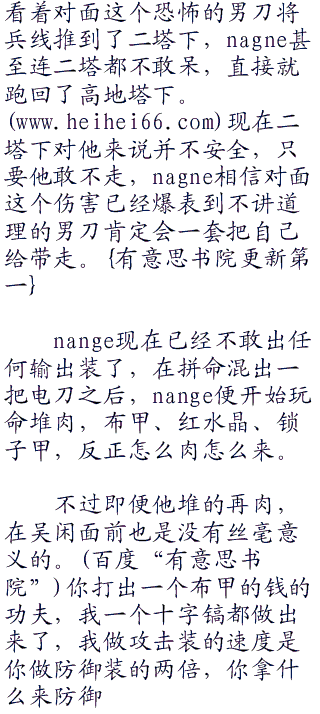 看着对面这个恐怖的男刀将
兵线推到了二塔下，nagne甚
至连二塔都不敢呆，直接就
跑回了高地塔下。
(www.heihei66.com)现在二
塔下对他来说并不安全，只
要他敢不走，nagne相信对面
这个伤害已经爆表到不讲道
理的男刀肯定会一套把自己
给带走。{有意思书院更新第
一}
nange现在已经不敢出任
何输出装了，在拼命混出一
把电刀之后，nange便开始玩
命堆肉，布甲、红水晶、锁
子甲，反正怎么肉怎么来。
不过即便他堆的再肉，
在吴闲面前也是没有丝毫意
义的。(百度“有意思书
院”)你打出一个布甲的钱的
功夫，我一个十字镐都做出
来了，我做攻击装的速度是
你做防御装的两倍，你拿什
么来防御